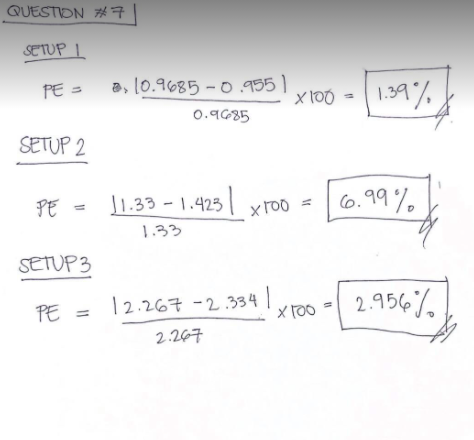 QUESTION #7
SETUP 1
PE = |0.9685 - 0.955| / 0.9685 x 100 = 1.39%
SETUP 2
PE = |1.33 - 1.423| / 1.33 x 100 = 6.99%
SETUP 3
PE = |2.267 - 2.334| / 2.267 x 100 = 2.956%